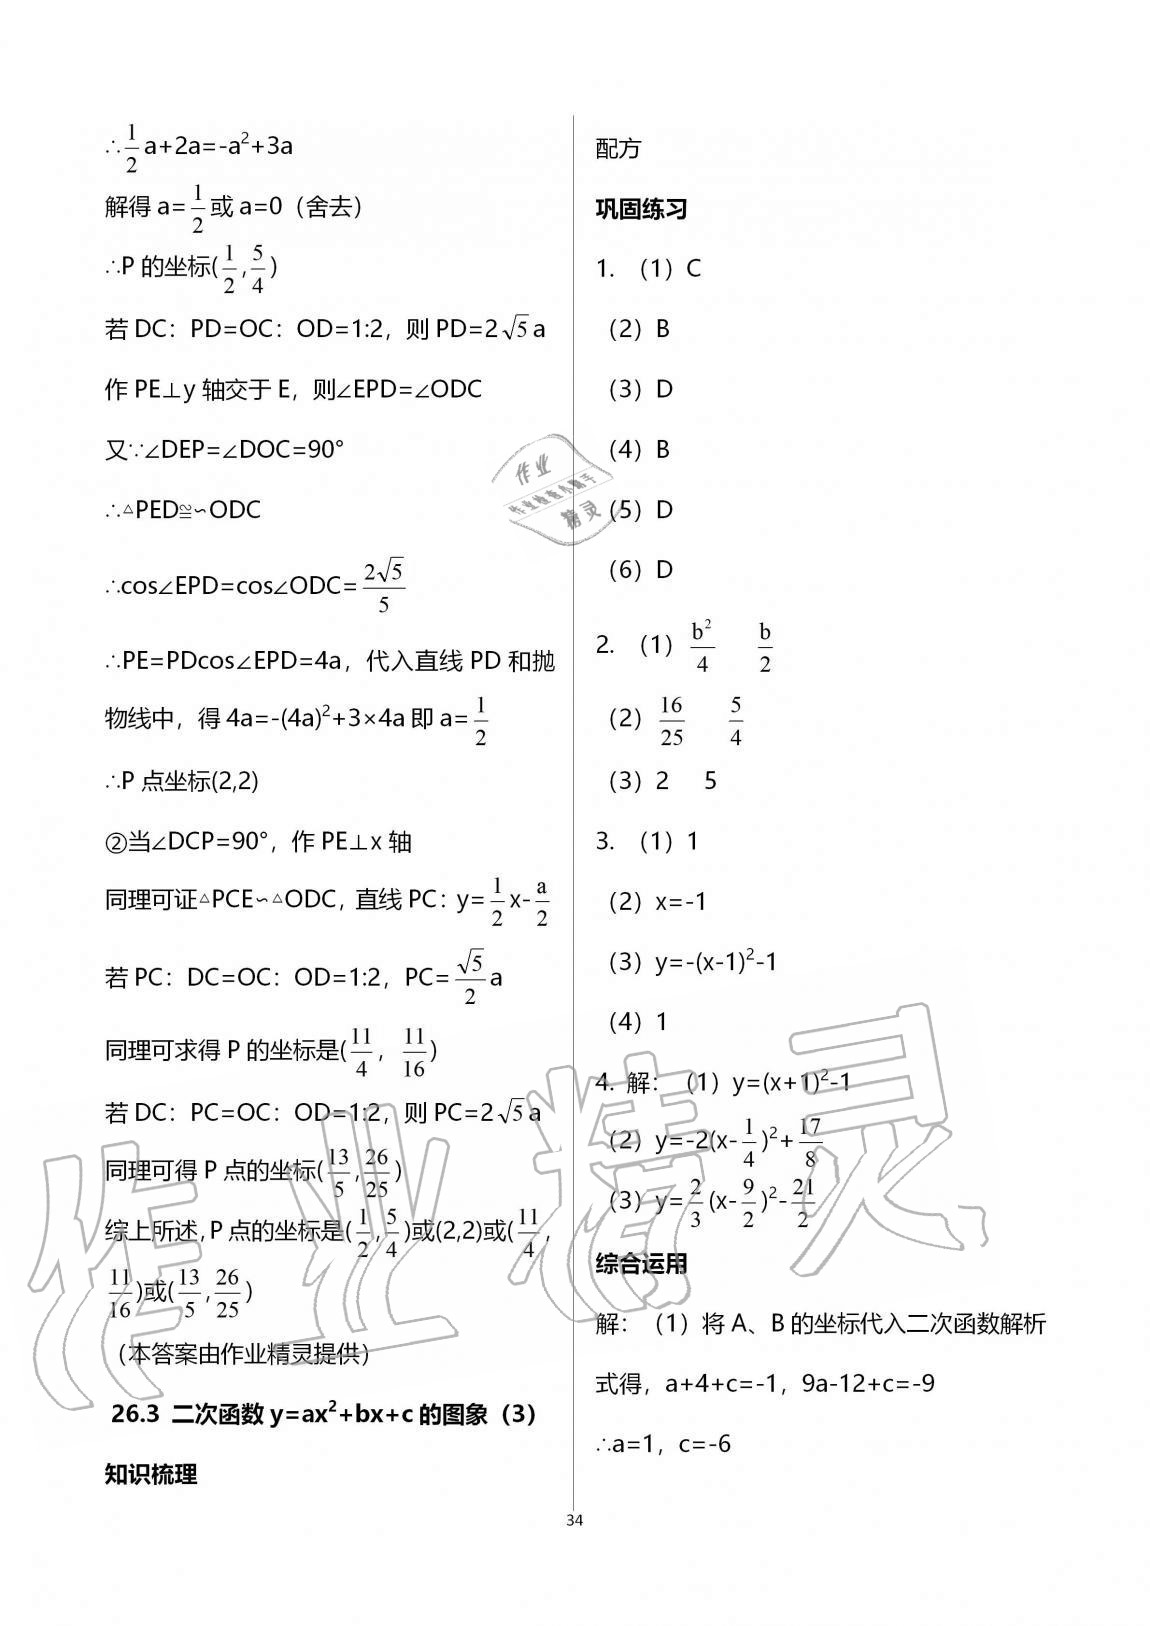 ∴1/2a+2a=-a²+3a
解得 a=1/2或 a=0（舍去）
∴P 的坐标(1/2,5/4)
若 DC：PD=OC：OD=1:2，则 PD=2√5a
作 PE⊥y 轴交于 E，则∠EPD=∠ODC
又∵∠DEP=∠DOC=90°
∴△PED≌∽ODC
∴cos∠EPD=cos∠ODC=2√5/5
∴PE=PDcos∠EPD=4a，代入直线 PD 和抛
物线中，得 4a=-(4a)²+3×4a 即 a=1/2
∴P 点坐标(2,2)
②当∠DCP=90°，作 PE⊥x 轴
同理可证△PCE∽△ODC, 直线 PC：y=1/2x-a/2
若 PC：DC=OC：OD=1:2，PC=√5/2a
同理可求得 P 的坐标是(11/4，11/16)
若 DC：PC=OC：OD=1:2，则 PC=2√5a
同理可得 P 点的坐标(13/5,26/25)
综上所述, P 点的坐标是(1/2,5/4)或(2,2)或(11/4,
11/16)或(13/5,26/25)
（本答案由作业精灵提供）
26.3 二次函数 y=ax²+bx+c 的图象（3）
知识梳理
配方
巩固练习
1. （1）C
（2）B
（3）D
（4）B
（5）D
（6）D
2. （1）b²/4 b/2
（2）16/25 5/4
（3）2 5
3. （1）1
（2）x=-1
（3）y=-(x-1)²-1
（4）1
4. 解：（1）y=(x+1)²-1
（2）y=-2(x-1/4)²+17/8
（3）y=2/3(x-9/2)²-21/2
综合运用
解：（1）将 A、B 的坐标代入二次函数解析
式得，a+4+c=-1，9a-12+c=-9
∴a=1，c=-6
34
作业
作业检查小助手
精灵
作业精灵